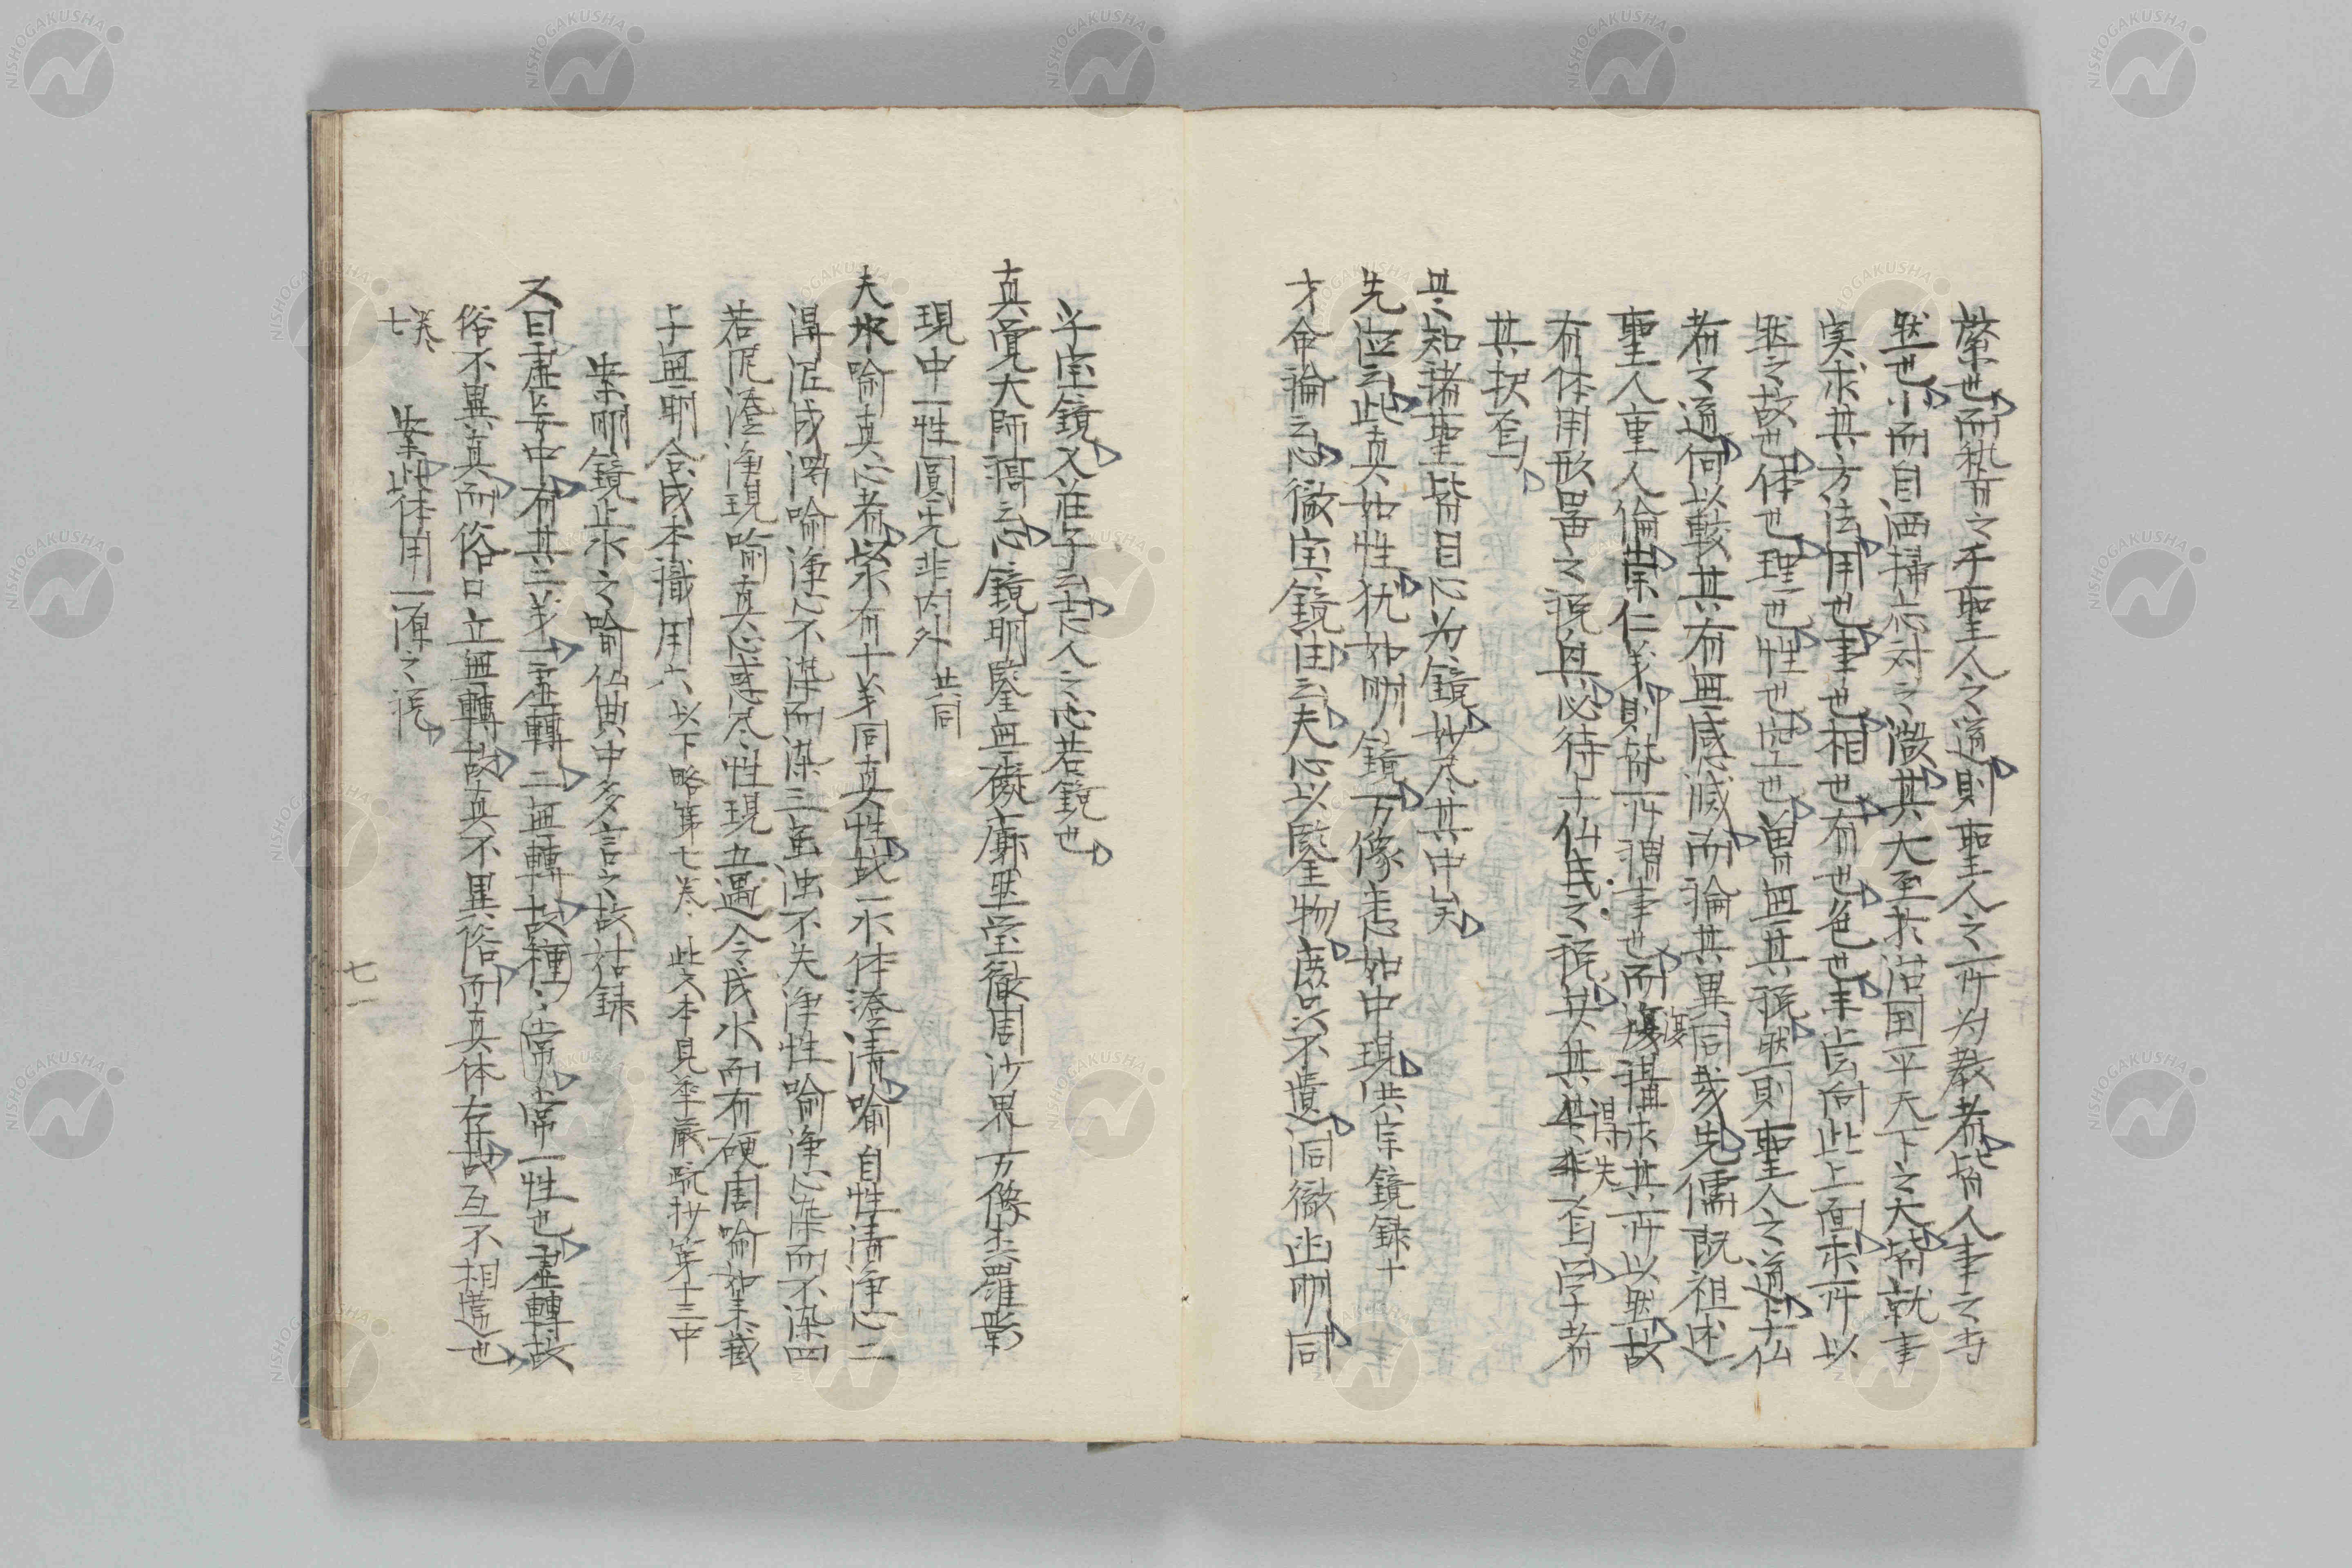 蔡也而執有之乎聖人之道則聖人之所为教者皆人事之方
然也小而自洒掃応対之微其大至於治国平天下之大皆就事
実求其方法用也事也相也有也色也未嘗向此上面求所以
然之故也体也理也性也空也曽無其説然則聖人之道与仏
者之道何以較其有無感滅而論其異同哉先儒既祖述
聖人重人倫崇仁義則皆所謂事也而復復講求其所以然故
有体用形器之説與必待于仏氏之説共其得失供非一旨学者
其択焉
具知諸聖皆目心为鏡妙尽其中矣
先位云此真如性犹如明鏡万像悉如中現洪宗鏡録十
才命論云心徹宝鏡注云夫心以鑒物庶品不遺洞徹幽明同
乎宝鏡又荘子云志人之心若鏡也
真覚大師謌云心鏡明鑒無礙廓然宝徹周沙界万像森羅影
現中一性圓光非内外 共同
夫水喩真心者以水有十義同真性故一水体澄清喩自性清浄心二
得泥成濁喩浄心不染而染三虽濁不失浄性喩浄心染而不染四
若泥澄浄現喩真心惑尽性現五遇冷成氷而有硬周喩如来蔵
与無明合成本識用六以下略第七卷 此文本見華厳疏抄第十三中
案明鏡止水之喩仏典中多言之故姑録
又曰虚妄中有其二義一虚轉二無轉故種種常常一性也虚轉故
俗不異真而俗曰立無轉故真不異俗而真体存故互不相遺也
七卷 案此体用一源之説
七一
NISHOGAKUSHA